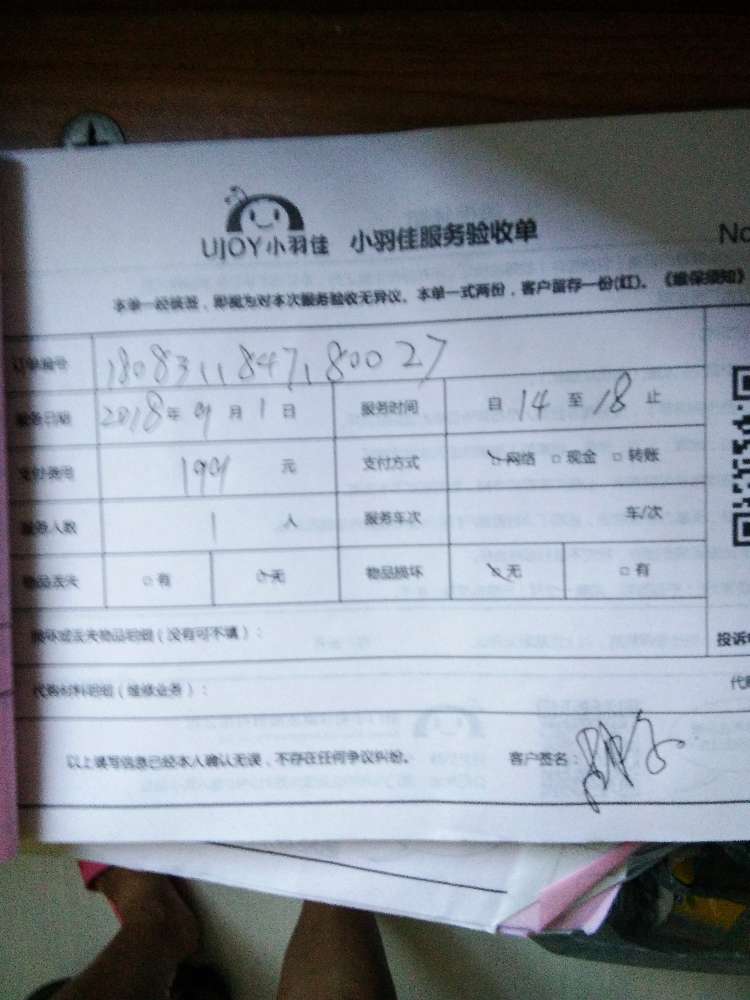 UJOY小羽佳 小羽佳服务验收单 No
本单一经签签，即视为对本次服务验收无异议。本单一式两份，客户留存一份(红)。《维保须知》
订单编号 1808311847180027
服务日期 2018年 9 月 1 日 服务时间 自 14 至 18 止
支付费用 元 支付方式 网络 现金 转账
服务人数 1 人 服务车次 车/次
物品丢失 有 无 物品损坏 无 有
损坏或丢失物品明细(没有可不填)：
投诉
代购材料明细(维修业务)：
以上填写信息已经本人确认无误，不存在任何争议纠纷。 客户签名：